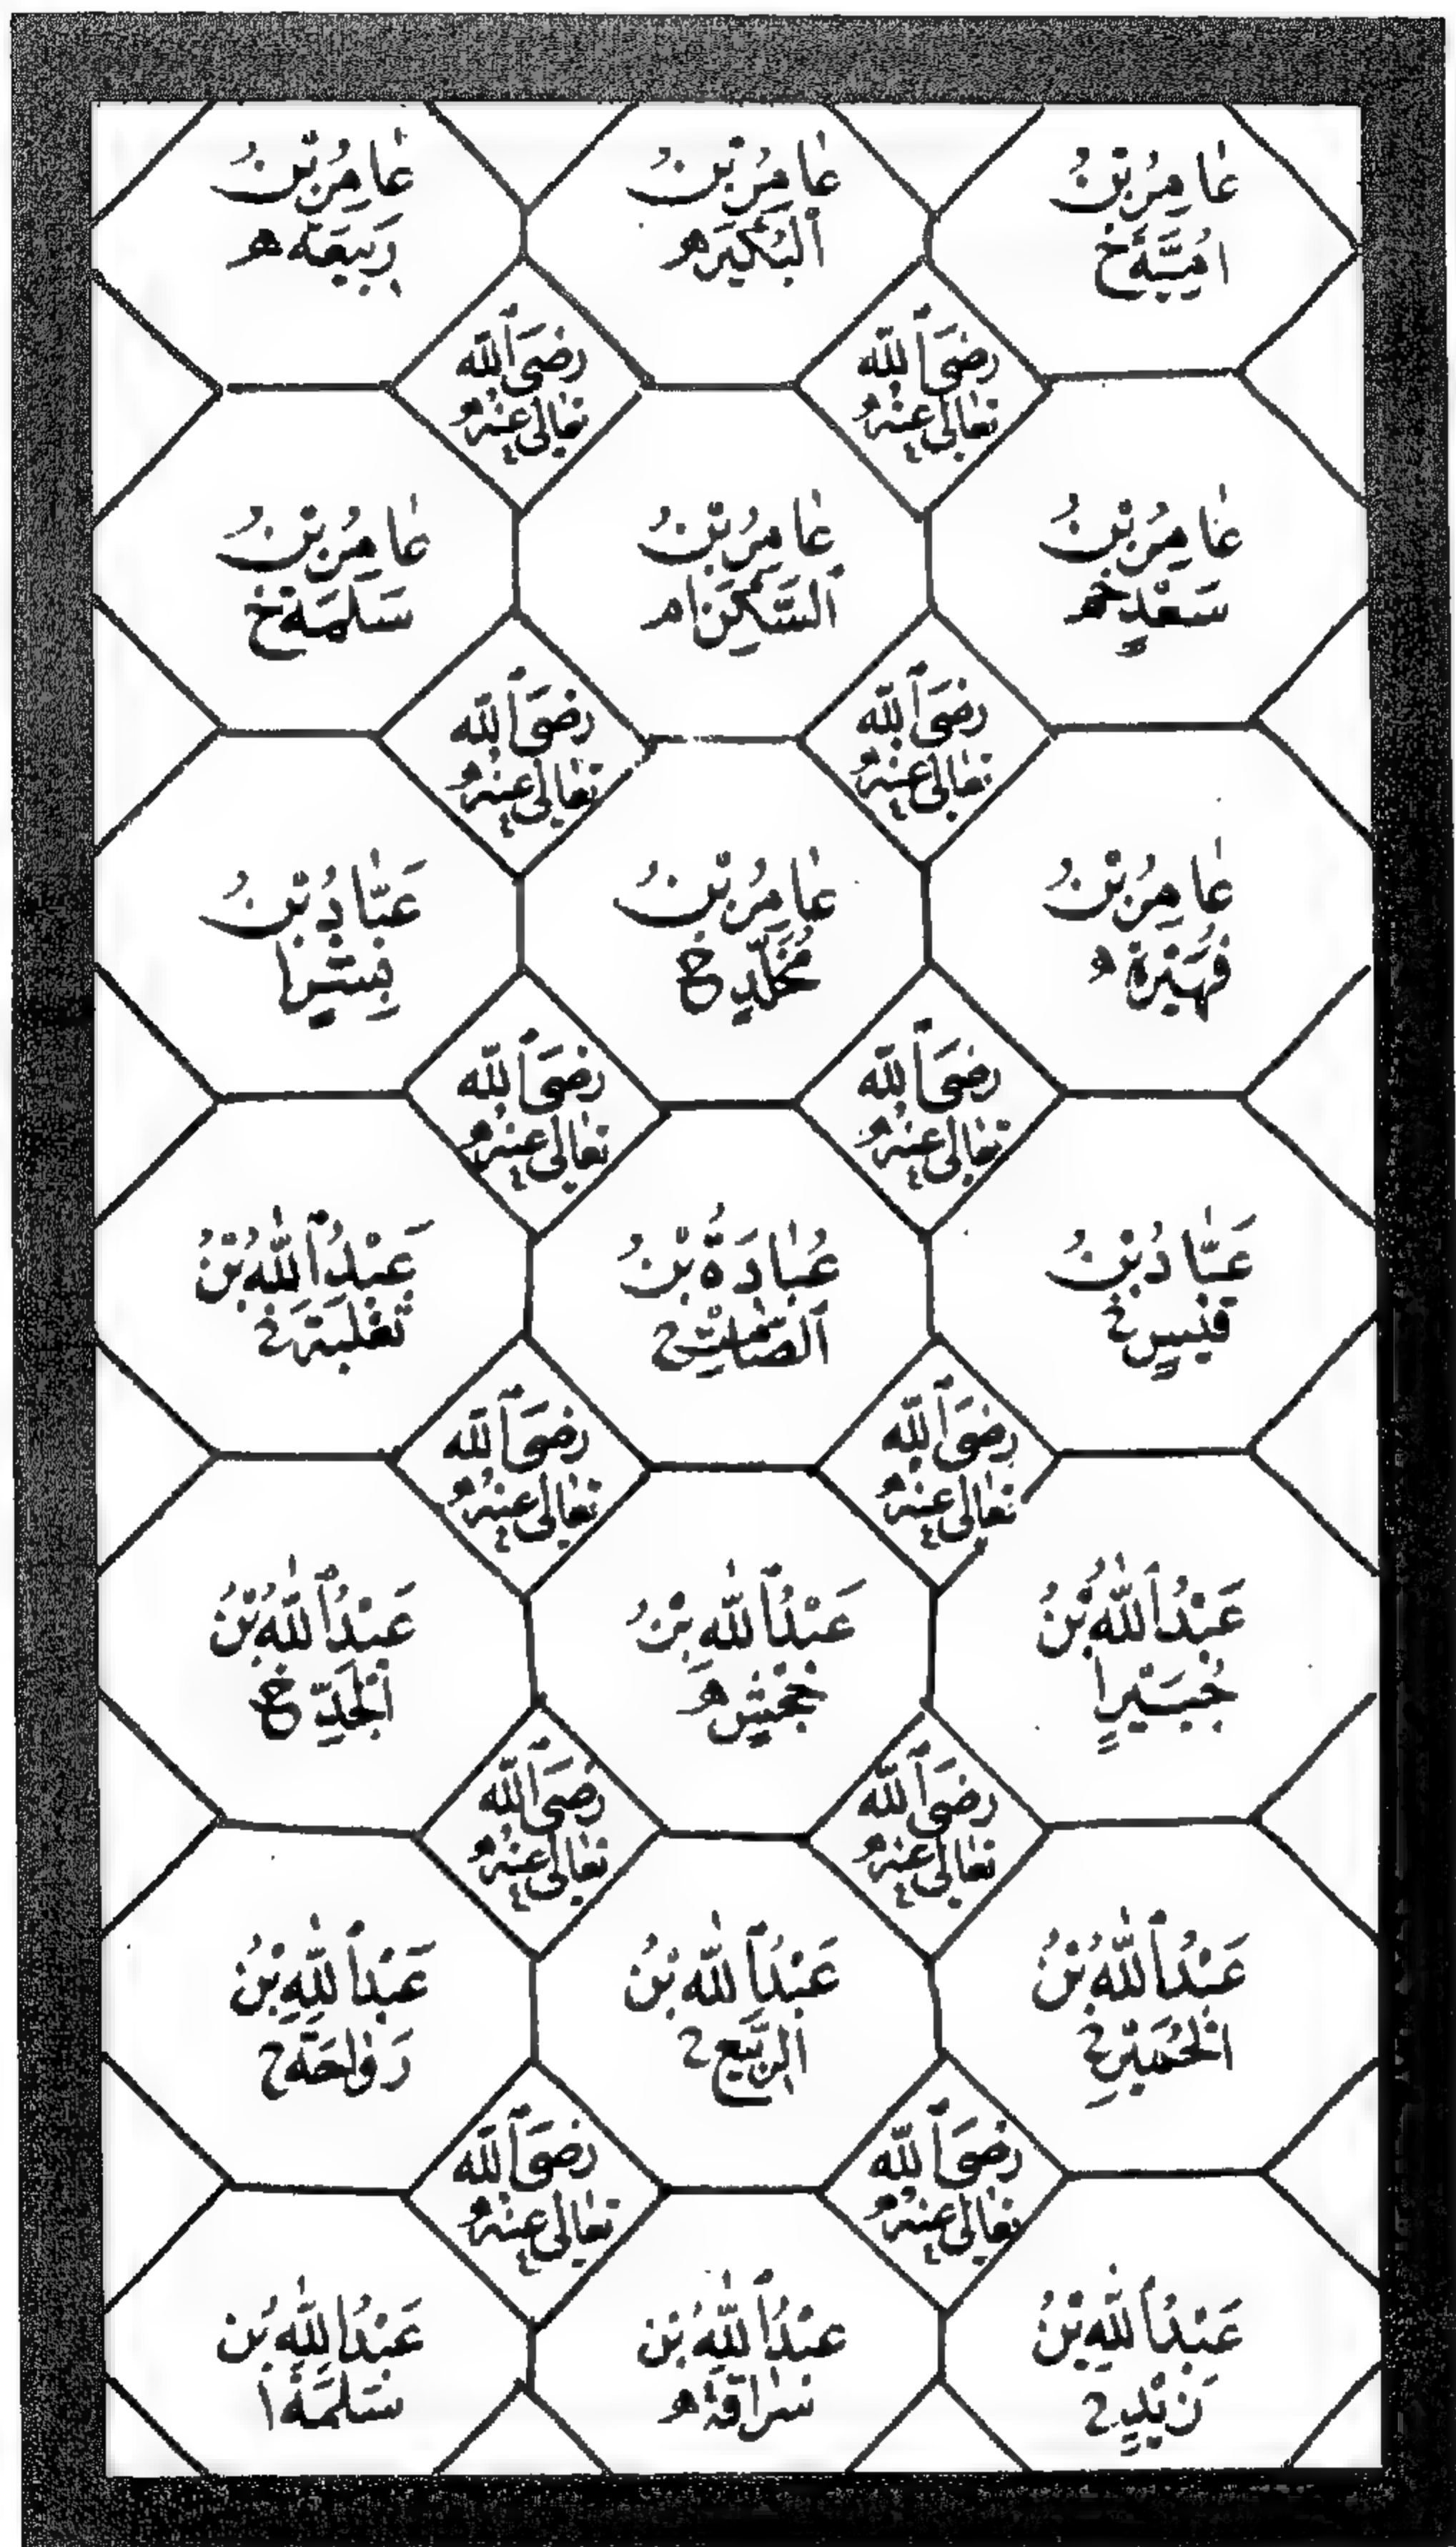 عَامِرُ بْنُ
اُمَيَّةَ خ
عَامِرُ بْنُ
الْبُكَيْرِ ه
عَامِرُ بْنُ
رَبِيعَةَ ه
رَضِىَ اللّٰه
تَعَالٰى عَنْهُ
رَضِىَ اللّٰه
تَعَالٰى عَنْهُ
عَامِرُ بْنُ
سَعْدٍ خ
عَامِرُ بْنُ
السَّكَنِ ا
عَامِرُ بْنُ
سَلَمَةَ خ
رَضِىَ اللّٰه
تَعَالٰى عَنْهُ
رَضِىَ اللّٰه
تَعَالٰى عَنْهُ
عَامِرُ بْنُ
فُهَيْرَةَ ه
عَامِرُ بْنُ
مُخَلَّدٍ خ
عَبَّادُ بْنُ
بِشْرٍ ا
رَضِىَ اللّٰه
تَعَالٰى عَنْهُ
رَضِىَ اللّٰه
تَعَالٰى عَنْهُ
عَبَّادُ بْنُ
قَيْسٍ خ
عُبَادَةُ بْنُ
الصَّامِتِ خ
عَبْدُ اللّٰهِ بْنُ
ثَعْلَبَةَ خ
رَضِىَ اللّٰه
تَعَالٰى عَنْهُ
رَضِىَ اللّٰه
تَعَالٰى عَنْهُ
عَبْدُ اللّٰهِ بْنُ
جُبَيْرٍ ا
عَبْدُ اللّٰهِ بْنُ
جَحْشٍ ه
عَبْدُ اللّٰهِ بْنُ
الْجَدِّ خ
رَضِىَ اللّٰه
تَعَالٰى عَنْهُ
رَضِىَ اللّٰه
تَعَالٰى عَنْهُ
عَبْدُ اللّٰهِ بْنُ
الْحُمَيِّرِ خ
عَبْدُ اللّٰهِ بْنُ
الرَّبِيعِ خ
عَبْدُ اللّٰهِ بْنُ
رَوَاحَةَ خ
رَضِىَ اللّٰه
تَعَالٰى عَنْهُ
رَضِىَ اللّٰه
تَعَالٰى عَنْهُ
عَبْدُ اللّٰهِ بْنُ
زَيْدٍ خ
عَبْدُ اللّٰهِ بْنُ
سُرَاقَةَ ه
عَبْدُ اللّٰهِ بْنُ
سَلَمَةَ ا